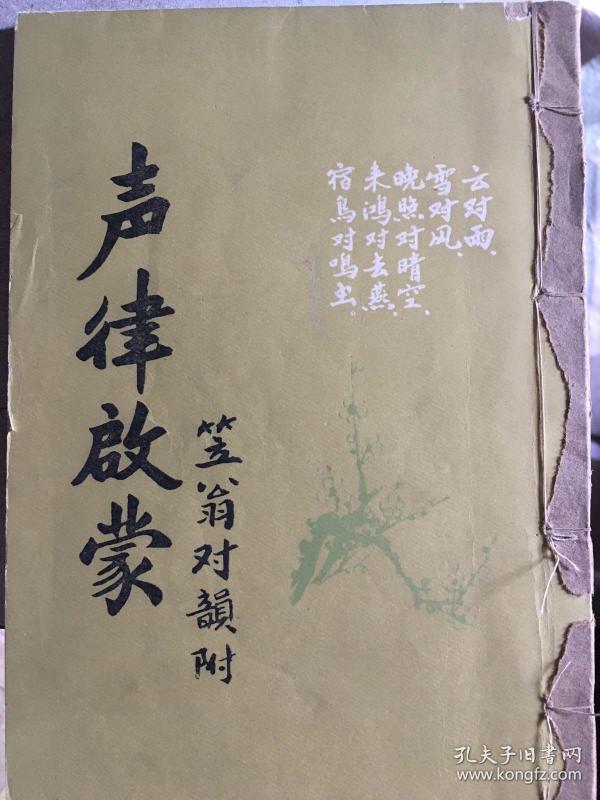 云对雨、
雪对风、
晚照对晴空、
来鸿对去燕、
宿鳥对鳴虫。
声律啟蒙
笠翁对韻附
孔夫子旧書网
www.kongfz.com